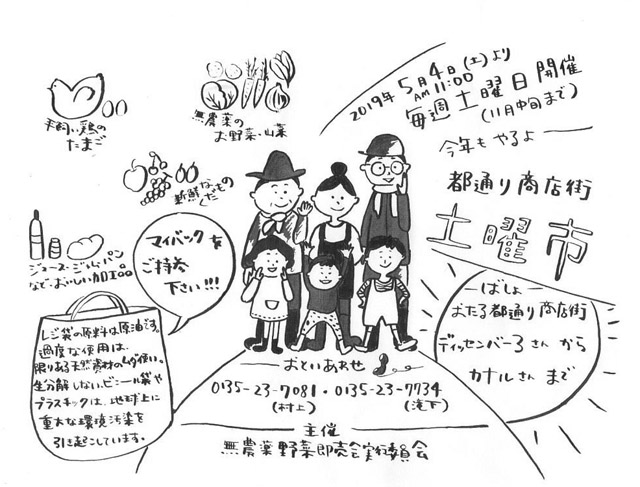 2019年5月4日(土)より
AM11:00
毎週土曜日開催
(11月中旬まで)
今年もやるよ
都通り商店街
土曜市
ばしょ
おたる都通り商店街
ディッセンバー3さんから
カナルさんまで
平飼い鶏の
たまご
無農薬の
お野菜・山菜
新鮮な
くだもの
ジュース・ジャム・パン
など、おいしい加工品
マイバックを
ご持参
下さい!!!
レジ袋の原料は原油です。
過度な使用は、
限りある天然資材のムダ使い。
生分解しない、ビニール袋や
プラスチックは、地球上に
重大な環境汚染を
引き起こしています。
おといあわせ
0135-23-7081・0135-23-7734
(村上)
(滝下)
主催
無農薬野菜即売会実行委員会